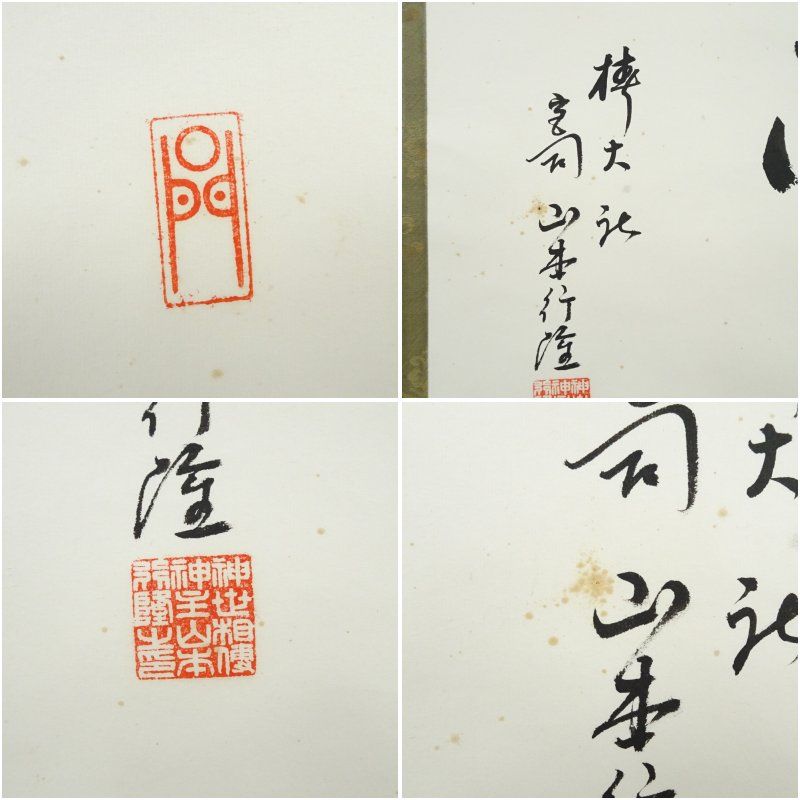 椿大社
宮司 山本行隆
行隆
神世相傳
神主山本
行隆之印
大社
司 山本行